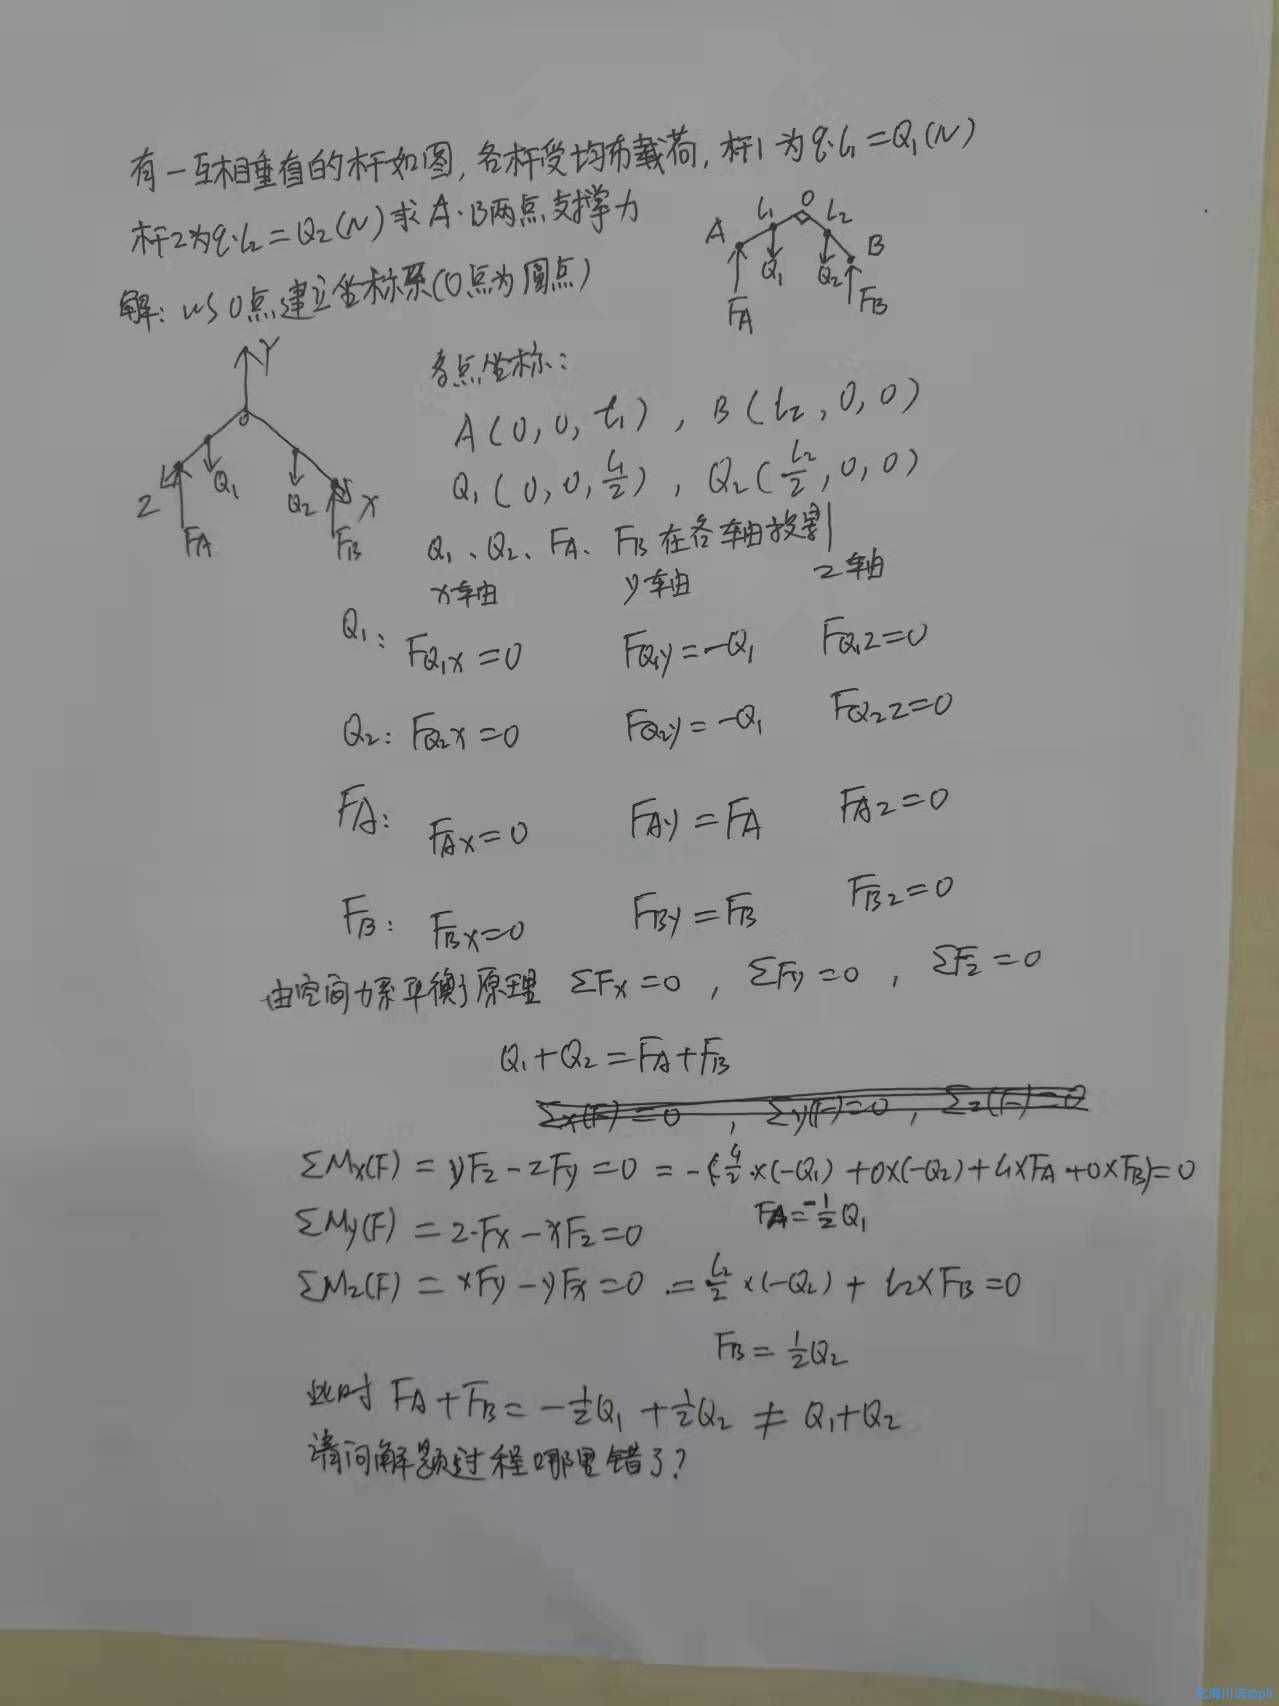 有一互相垂直的杆如图,各杆受均布载荷,杆1为q·l₁=Q₁(N)
杆2为q·l₂=Q₂(N)求A·B两点支撑力
A l₁ O l₂ B
Q₁ Q₂
FA FB
解:以O点建立坐标系(O点为圆点)
Y
O
Z Q₁ Q₂ X
FA FB
各点坐标:
A(0,0,l₁),B(l₂,0,0)
Q₁(0,0,l₁/2),Q₂(l₂/2,0,0)
Q₁、Q₂、FA、FB在各轴投影
x轴 y轴 z轴
Q₁: FQ₁x=0 FQ₁y=-Q₁ FQ₁z=0
Q₂: FQ₂x=0 FQ₂y=-Q₁ FQ₂z=0
FA: FAx=0 FAy=FA FAz=0
FB: FBx=0 FBy=FB FBz=0
由空间力系平衡原理 ΣFx=0,ΣFy=0,ΣFz=0
Q₁+Q₂=FA+FB
Σx(F)=0,Σy(F)=0,Σz(F)=0
ΣMx(F)=yFz-zFy=0=-(l₁/2×(-Q₁)+0×(-Q₂)+l₁×FA+0×FB)=0
FA=-½Q₁
ΣMy(F)=z·Fx-xFz=0
ΣMz(F)=xFy-yFx=0=l₂/2×(-Q₂)+l₂×FB=0
FB=½Q₂
此时FA+FB=-½Q₁+½Q₂≠Q₁+Q₂
请问解题过程哪里错了?